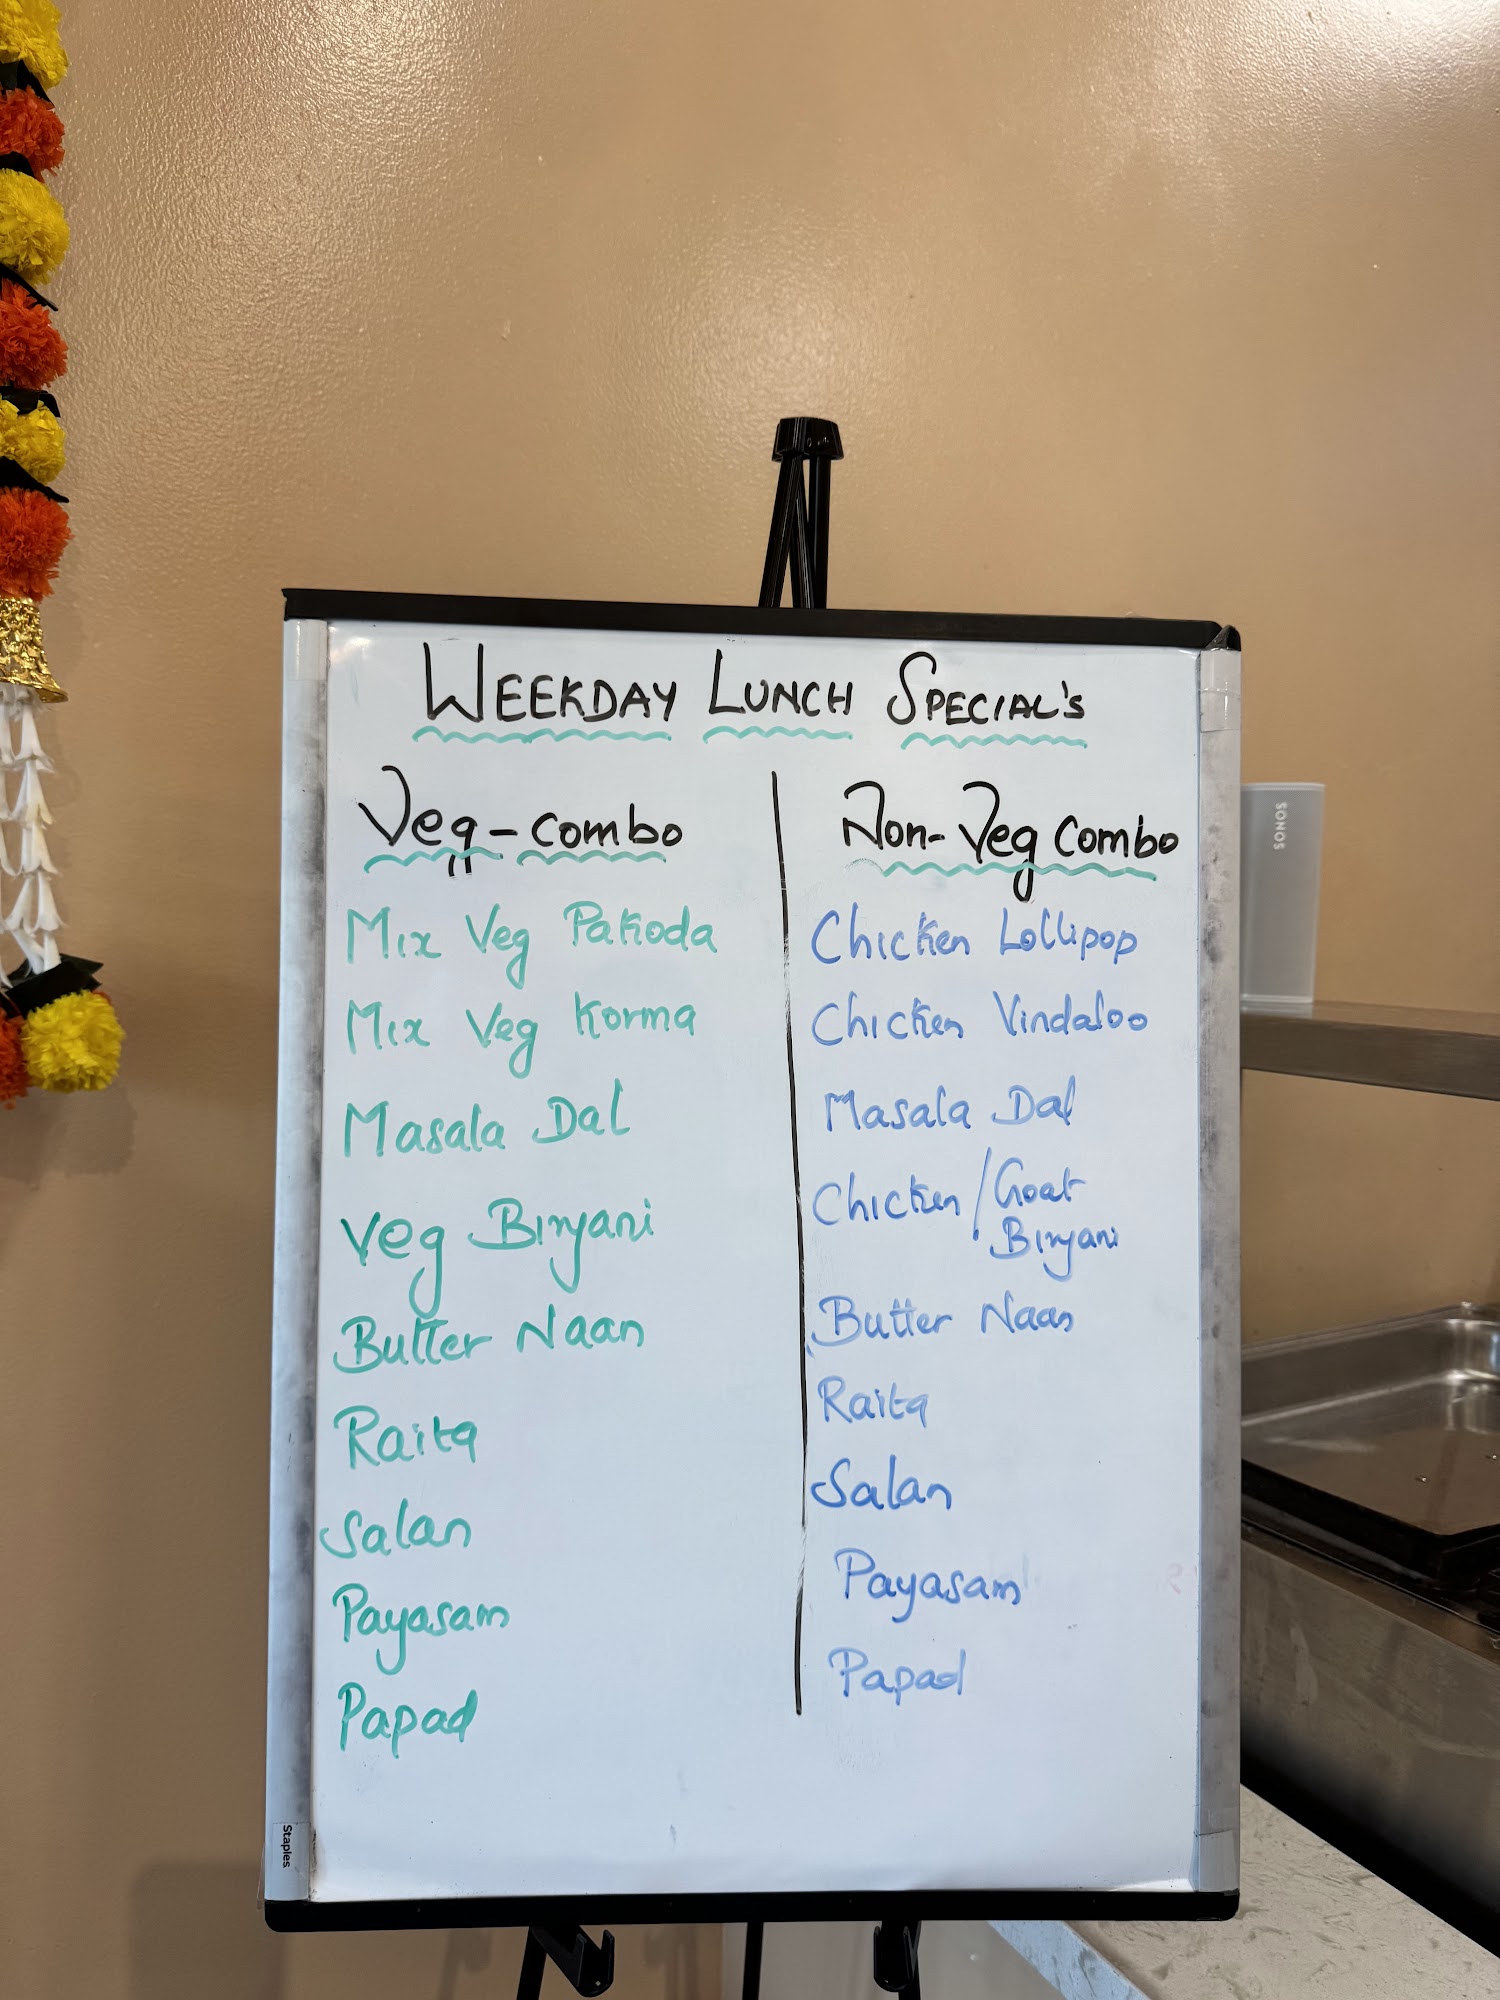 WEEKDAY LUNCH SPECIAL'S
Veg-combo
Mix Veg Pakoda
Mix Veg Korma
Masala Dal
Veg Biryani
Butter Naan
Raita
Salan
Payasam
Papad
Non-Veg Combo
Chicken Lollipop
Chicken Vindaloo
Masala Dal
Chicken/Goat
Biryani
Butter Naan
Raita
Salan
Payasam
Papad
SONOS
Staples